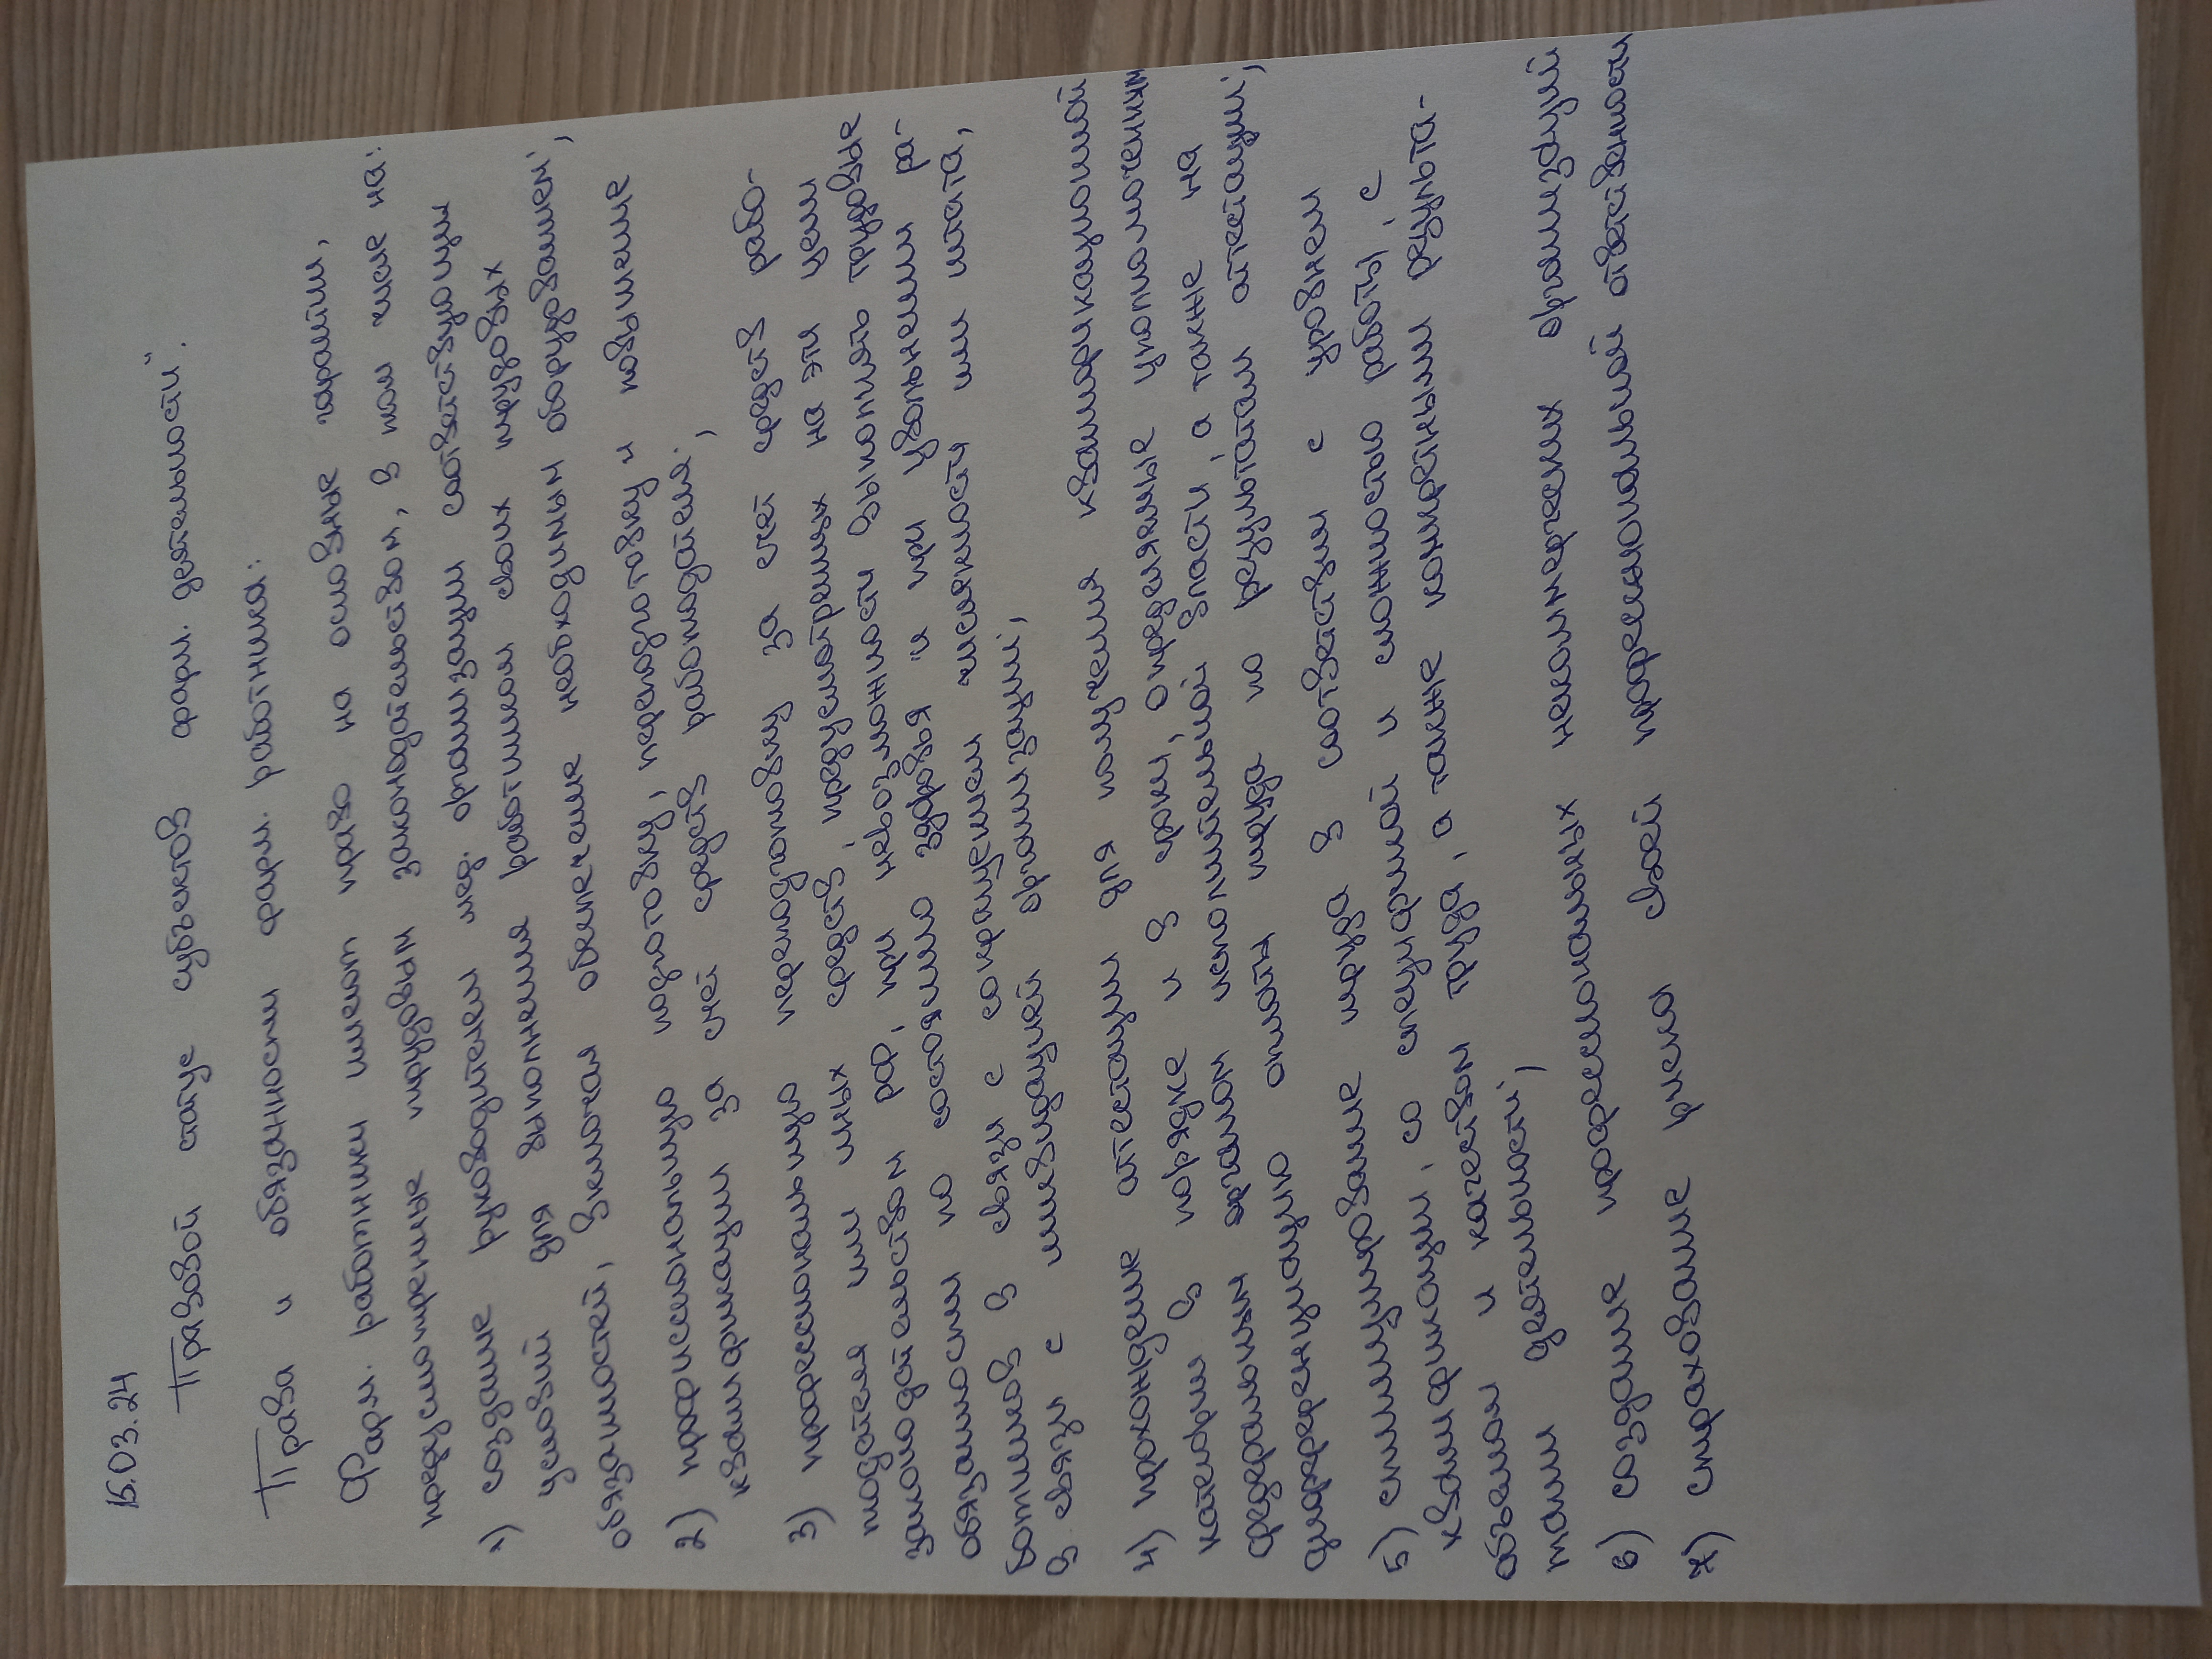 15.03.24
Правовой статус субъектов фарм. деятельности.
Права и обязанности фарм. работника:
Фарм. работники имеют право на основные гарантии,
предусмотренные трудовым законодательством, в том числе на:
1) создание руководителем мед. организации соответствующих
условий для выполнения работником своих трудовых
обязанностей, включая обеспечение необходимым оборудованием;
2) профессиональную подготовку, переподготовку и повышение
квалификации за счёт средств работодателя;
3) профессиональную переподготовку за счёт средств рабо-
тодателя или иных средств, предусмотренных на эти цели
законодательством РФ, при невозможности выполнять трудовые
обязанности по состоянию здоровья и при увольнении ра-
ботников в связи с сокращением численности или штата,
в связи с ликвидацией организации;
4) прохождение аттестации для получения квалификационной
категории в порядке и в сроки, определяемые уполномоченным
федеральным органом исполнительной власти, а также на
дифференциацию оплаты труда по результатам аттестации;
5) стимулирование труда в соответствии с уровнем
квалификации, со спецификой и сложностью работы, с
объемом и качеством труда, а также конкретными результа-
тами деятельности;
6) создание профессиональных некоммерческих организаций
7) страхование риска своей профессиональной ответственности